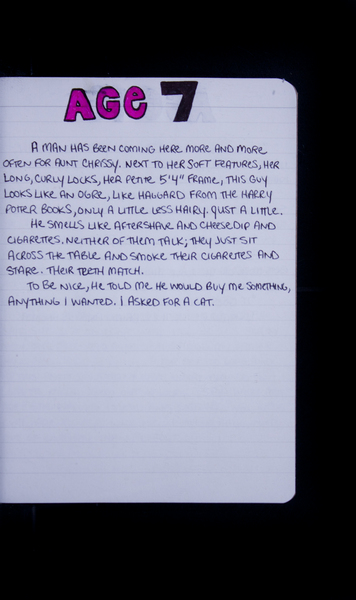 AGE 7
A MAN HAS BEEN COMING HERE MORE AND MORE
OFTEN FOR AUNT CHRISSY. NEXT TO HER SOFT FEATURES, HER
LONG, CURLY LOCKS, HER PETITE 5'4" FRAME, THIS GUY
LOOKS LIKE AN OGRE, LIKE HAGGARD FROM THE HARRY
POTER BOOKS, ONLY A LITTLE LESS HAIRY. JUST A LITTLE.
HE SMELLS LIKE AFTERSHAVE AND CHEESEDIP AND
CIGARETTES. NEITHER OF THEM TALK; THEY JUST SIT
ACROSS THE TABLE AND SMOKE THEIR CIGARETTES AND
STARE. THEIR TEETH MATCH.
TO BE NICE, HE TOLD ME HE WOULD BUY ME SOMETHING,
ANYTHING I WANTED. I ASKED FOR A CAT.